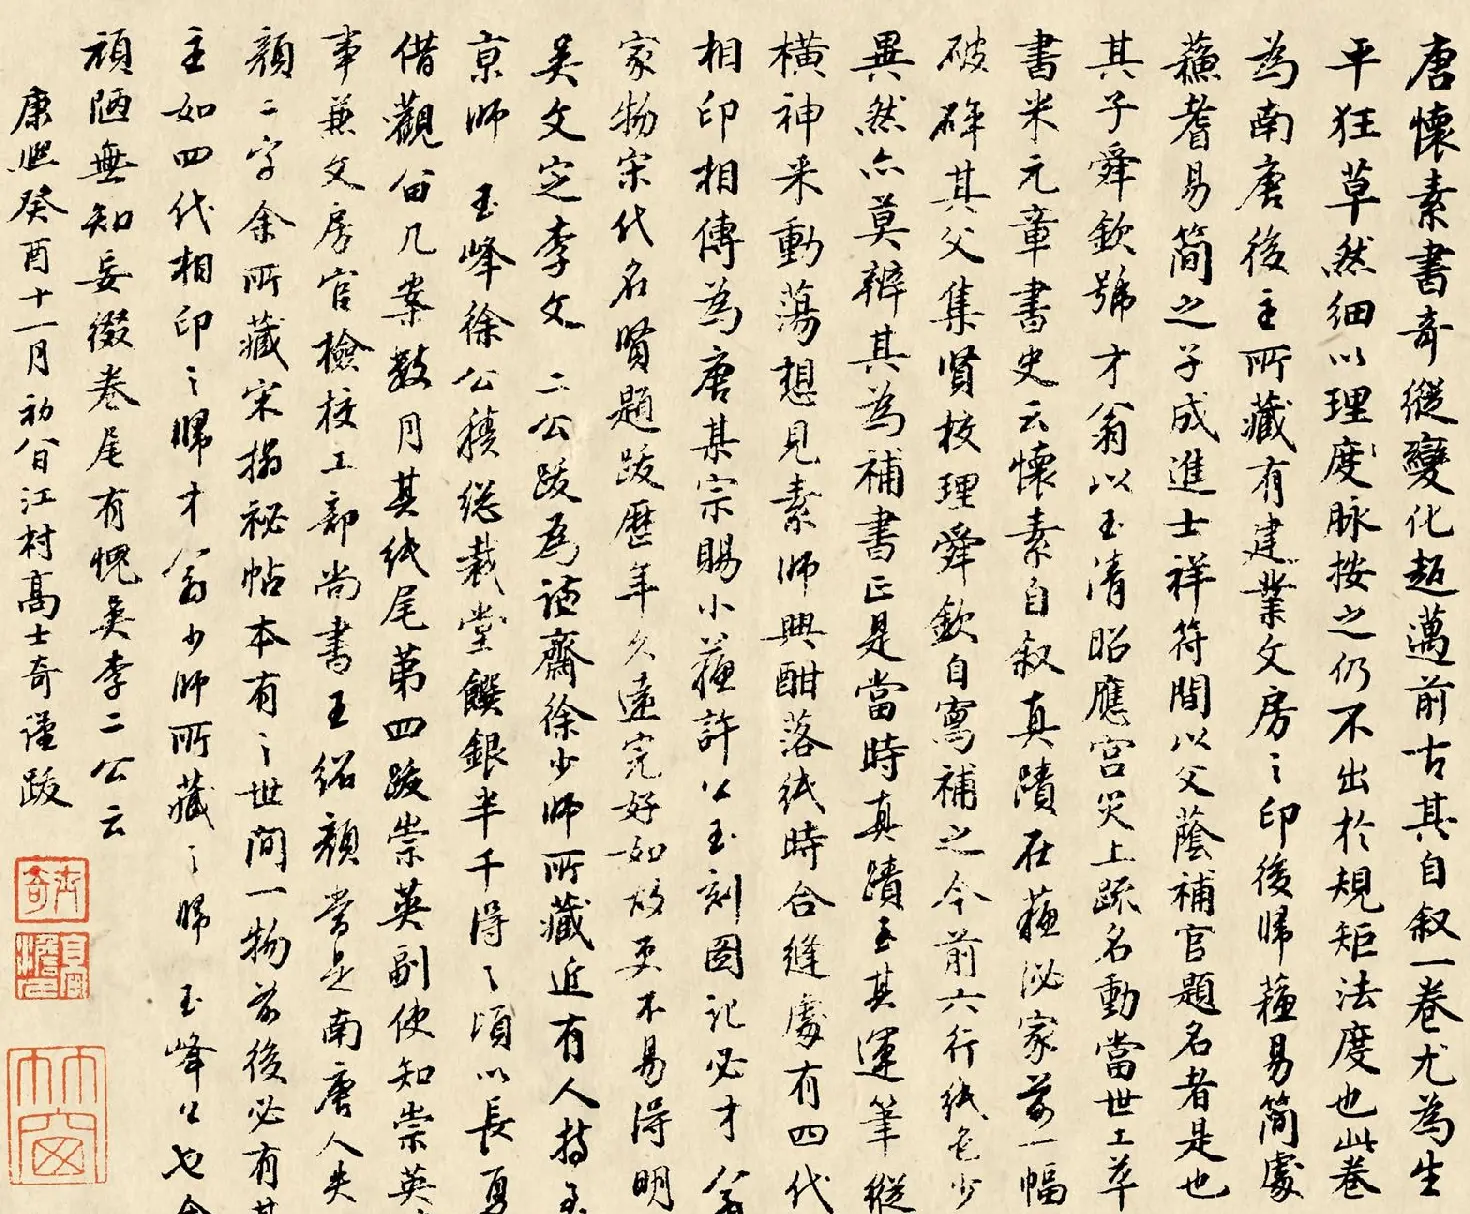 唐懷素書奇縱變化超邁前古其自叙一卷尤為生
平狂草然細以理度脉按之仍不出於規矩法度也此卷
為南唐後主所藏有建業文房之印後歸蘓易簡處
蘓耆易簡之子成進士祥符間以父蔭補官題名者是也
其子舜欽號才翁以玉清昭應宫災上疏名動當世工草
書米元章書史云懷素自叙真蹟在蘓泌家前一幅
破碎其父集賢校理舜欽自寫補之今前六行紙色少
異然亦莫辨其為補書正是當時真蹟至其運筆縱
横神采動蕩想見素師興酣落紙時合縫處有四代
相印相傳為唐某宗賜小蘓許公玉刻圖記必才翁
家物宋代名賢題跋歷年久遠完好如故更不易得明
吴文定李文二公跋為謙齋徐少師所藏近有人持至
京師 玉峰徐公積總裁堂饌銀半千得之頃以長夏
借觀留几案數月其紙尾第四跋崇英副使知崇英
事兼文房官檢校工部尚書王紹顔當是南唐人失
顔二字余所藏宋搨祕帖本有之世間一物前後必有其
主如四代相印之歸才翁少師所藏之歸 玉峰公也余
頑陋無知妄綴卷尾有愧吴李二公云
康熙癸酉十一月初八日江村高士奇謹跋